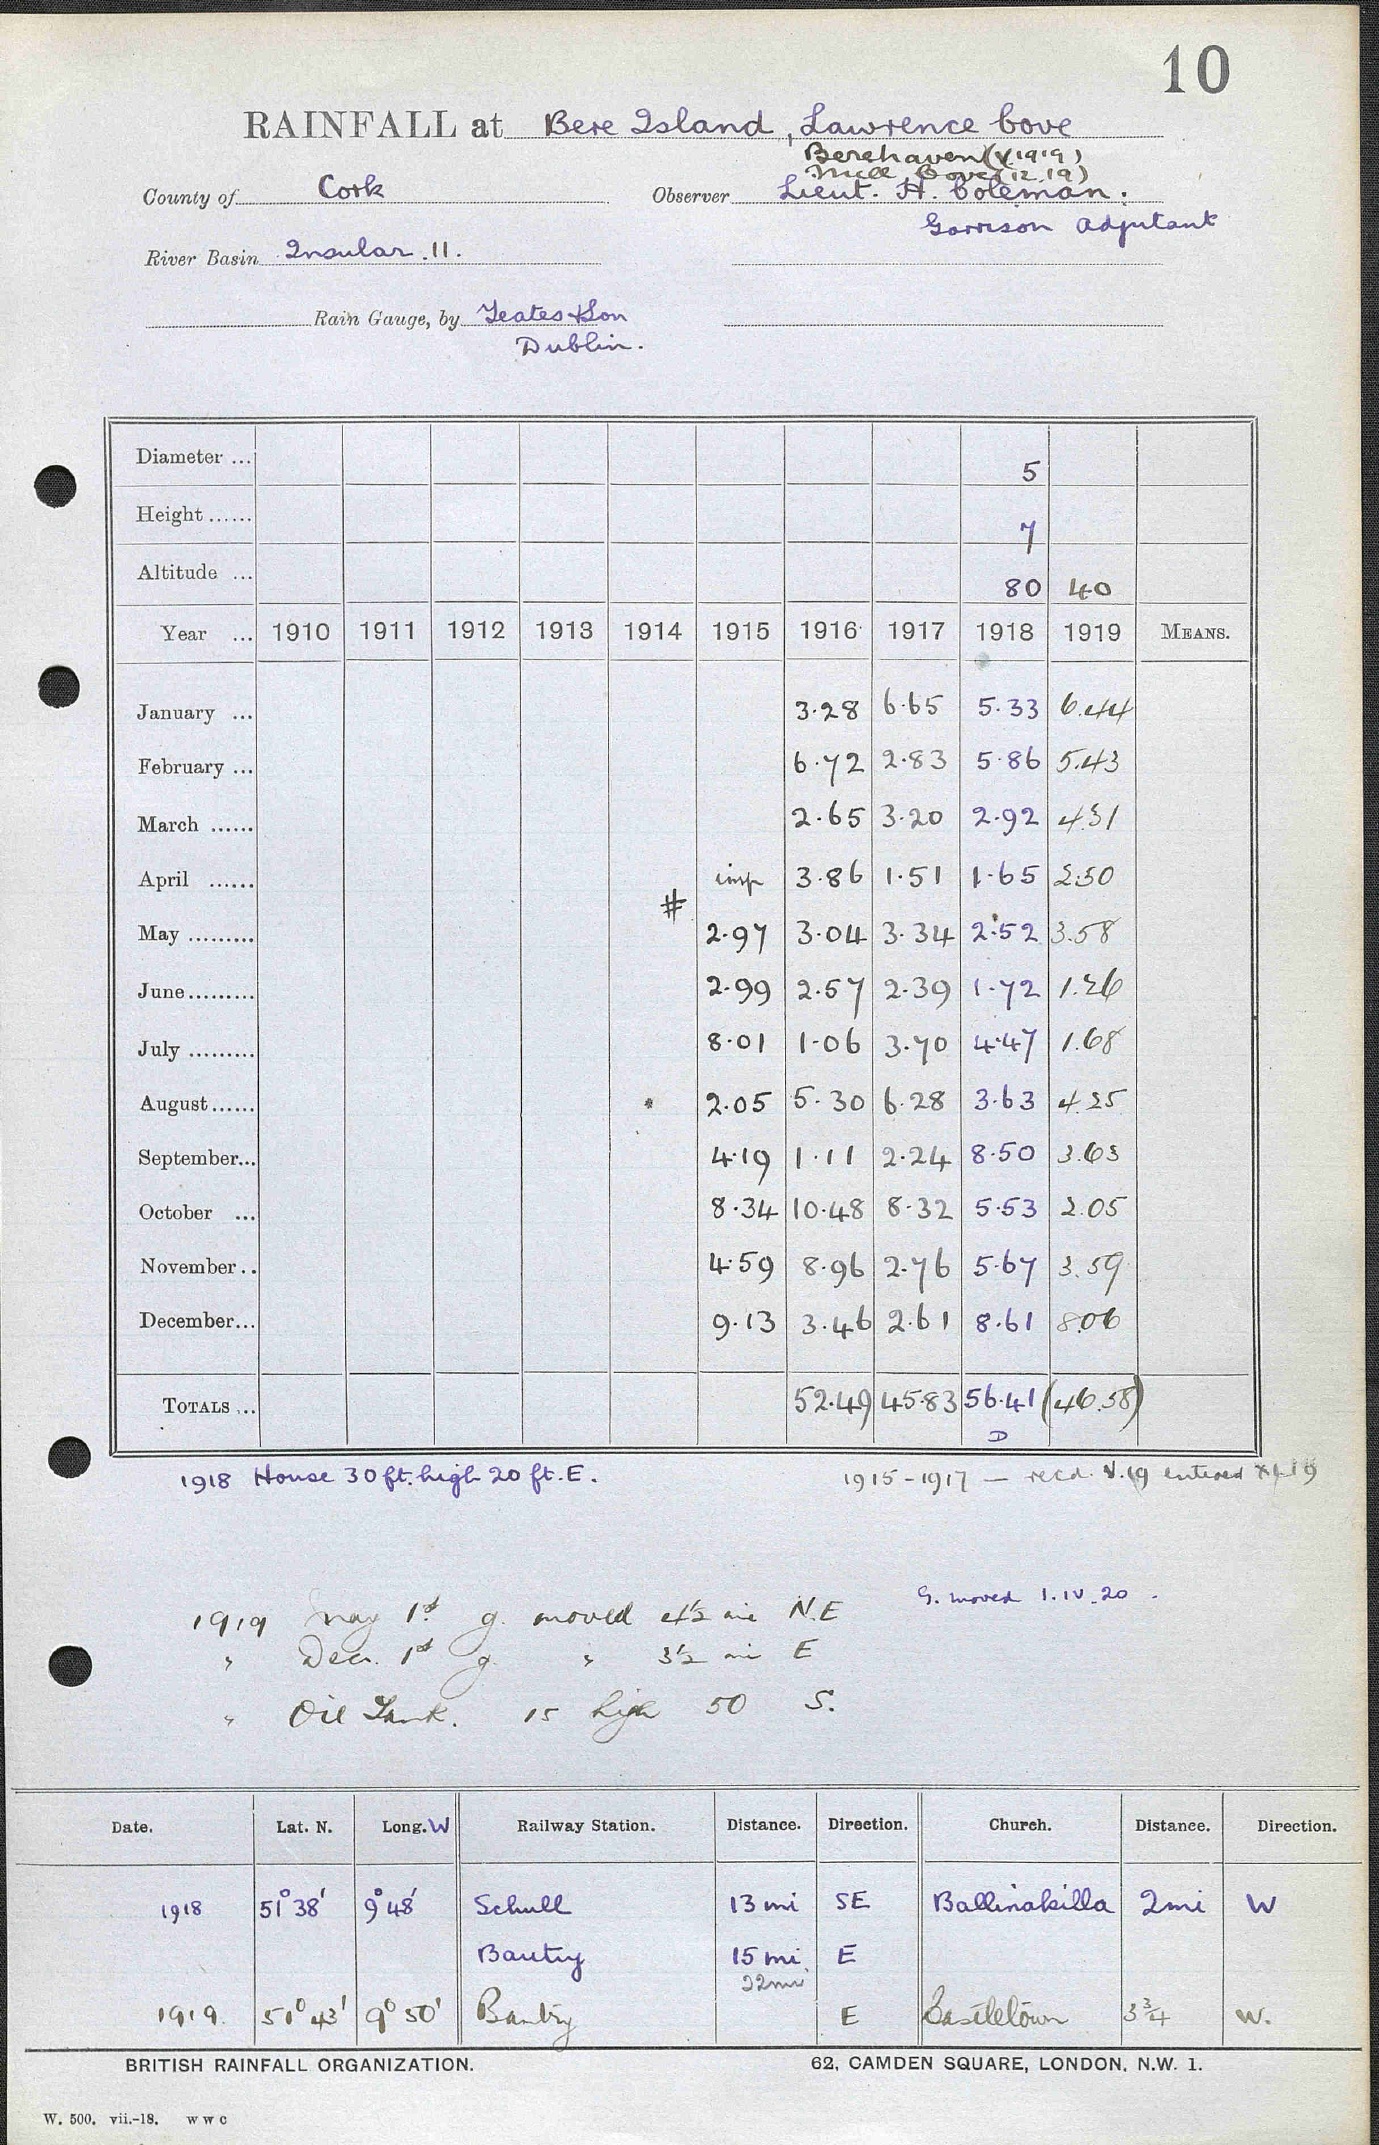 10
RAINFALL at Bere Island, Lawrence Cove
Berehaven (V.1919)
Mill Cove (12.19)
County of Cork Observer Lieut. H. Coleman.
Garrison Adjutant
River Basin Insular. 11.
Rain Gauge, by Yeates & Son
Dublin.
Diameter ... 5
Height ...... 7
Altitude ... 80 40
Year ... 1910 1911 1912 1913 1914 1915 1916 1917 1918 1919 MEANS.
January ... 3.28 6.65 5.33 6.44
February ... 6.72 2.83 5.86 5.43
March ...... 2.65 3.20 2.92 4.31
April ...... imp 3.86 1.51 1.65 2.30
#
May ......... 2.97 3.04 3.34 2.52 3.58
June......... 2.99 2.57 2.39 1.72 1.26
July ......... 8.01 1.06 3.70 4.47 1.68
August...... * 2.05 5.30 6.28 3.63 4.25
September... 4.19 1.11 2.24 8.50 3.63
October ... 8.34 10.48 8.32 5.53 2.05
November .. 4.59 8.96 2.76 5.67 3.59
December... 9.13 3.46 2.61 8.61 8.06
TOTALS ... 52.49 45.83 56.41 (46.58)
D
1918 House 30 ft. high 20 ft. E. 1915-1917 — recd. V.19 entered
G. moved 1.IV.20.
1919 May 1st g. moved 4½ mi N.E
" Dec. 1st g. " 3½ mi E
" Oil Tank. 15 high 50 S.
Date. Lat. N. Long. W Railway Station. Distance. Direction. Church. Distance. Direction.
1918 51° 38' 9° 48' Schull 13 mi SE Ballinakilla 2 mi W
Bantry 15 mi. E
22 mi
1919. 51° 43' 9° 50' Bantry E Castletown 3¾ W.
BRITISH RAINFALL ORGANIZATION. 62, CAMDEN SQUARE, LONDON, N.W. 1.
W. 500. vii.-18. w w c